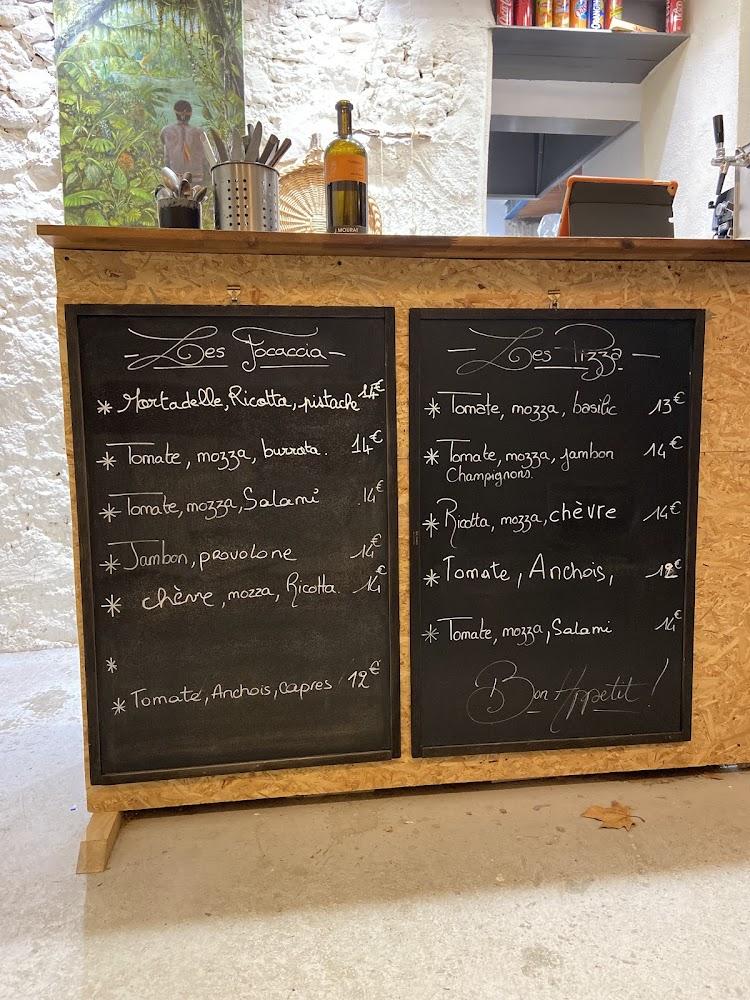 J. MOURAT
Les Focaccia
* Mortadelle, Ricotta, pistache 14€
* Tomate, mozza, burrata. 14€
* Tomate, mozza, Salami 14€
* Jambon, provolone 14€
* chèvre, mozza, Ricotta. 14€
*
* Tomate, Anchois, capres 12€
Les Pizza
* Tomate, mozza, basilic 13€
* Tomate, mozza, jambon 14€
Champignons.
* Ricotta, mozza, chèvre 14€
* Tomate, Anchois, 12€
* Tomate, mozza, Salami 14€
Bon Appetit !